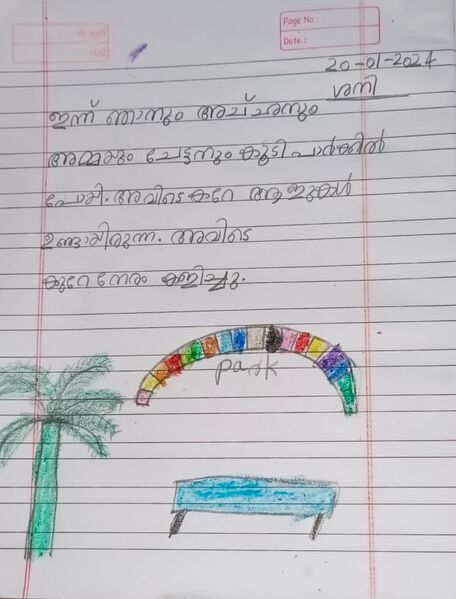 Page No :
Date :
20-01-2024
ശനി
ഇന്ന് ഞാനും അച്ഛനും
അമ്മയും ചേട്ടനും കൂടി പാർക്കിൽ
പോയി. അവിടെ കുറേ ആളുകൾ
ഉണ്ടായിരുന്നു. അവിടെ
കുറേ നേരം കളിച്ചു.
park